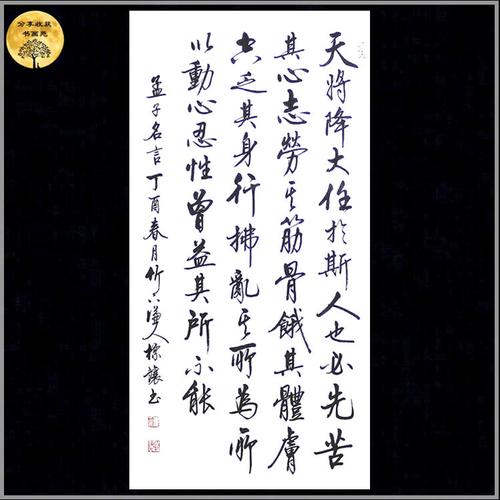 分享收获
书画苑
天将降大任於斯人也必先苦
其心志勞其筋骨餓其體膚
空乏其身行拂亂其所為所
以動心忍性曾益其所不能
孟子名言丁酉春月竹人书